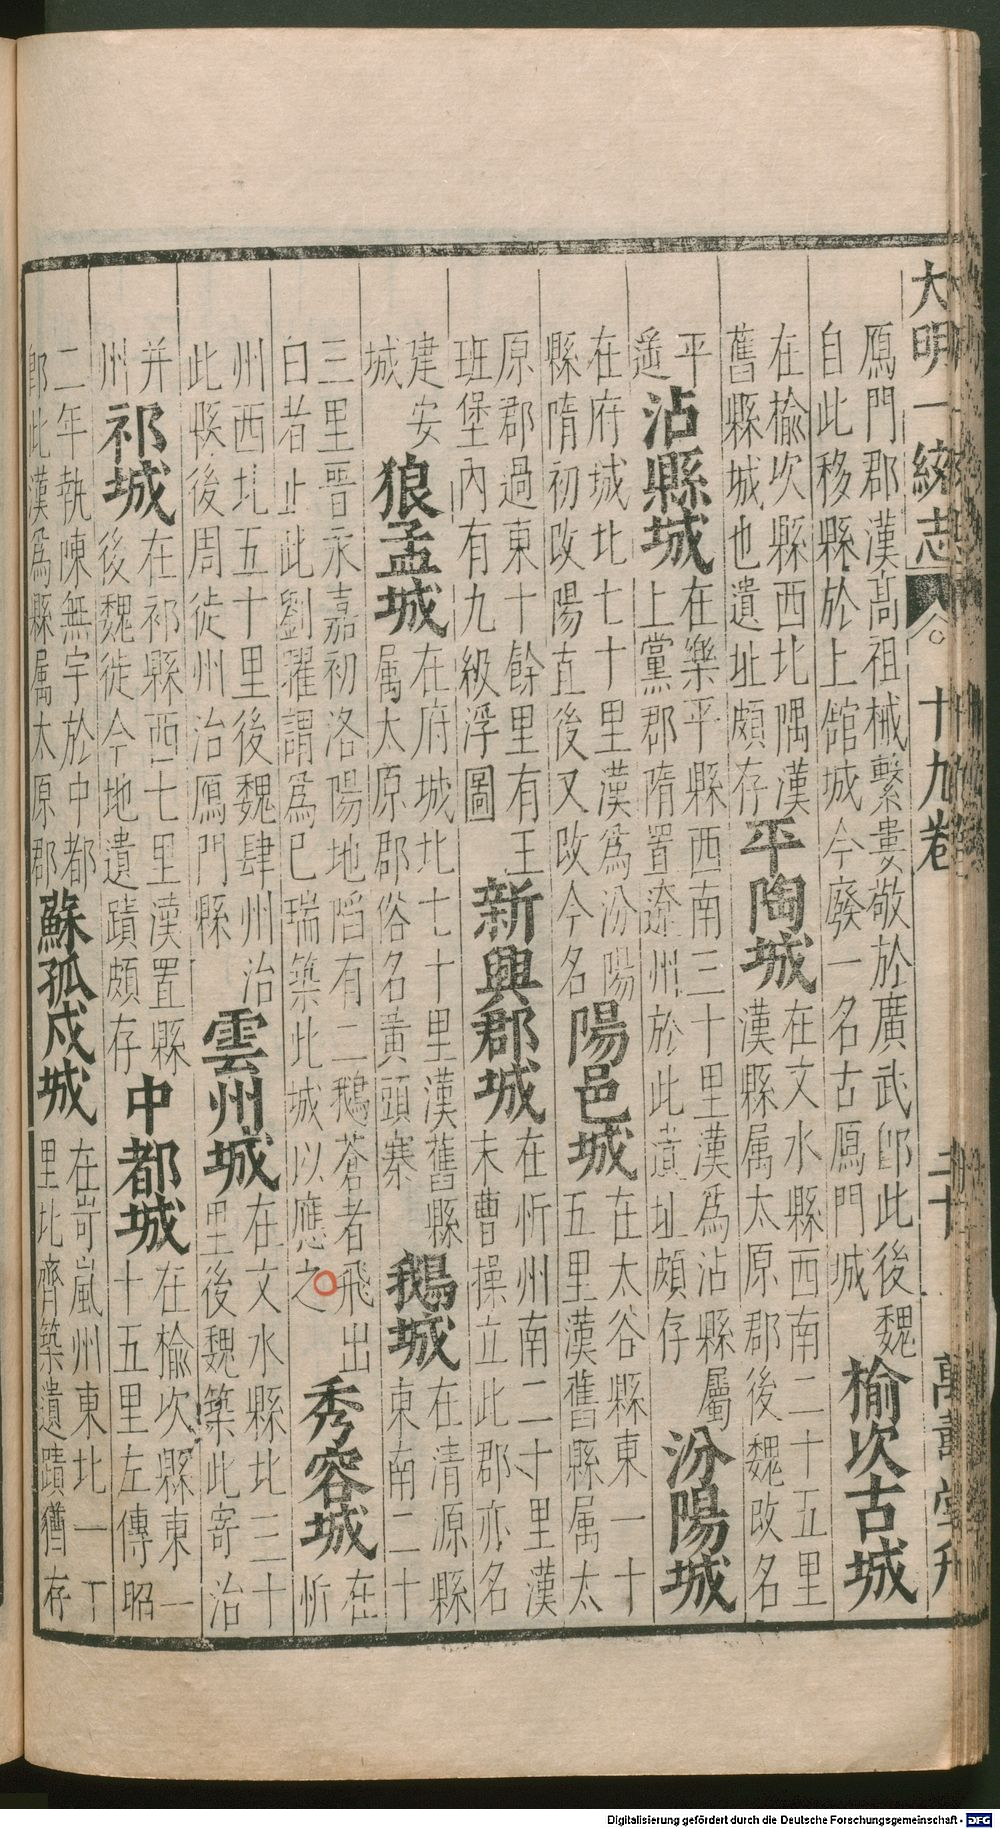 大明一統志 十九卷 二十 萬壽堂刊
鴈門郡漢高祖械繫婁敬於廣武即此後魏
自此移縣於上館城今廢一名古鴈門城
榆次古城
在榆次縣西北隅漢
舊縣城也遺址頗存
平陶城
在文水縣西南二十五里
漢縣属太原郡後魏改名
平
遥
沾縣城
在樂平縣西南三十里漢爲沾縣屬
上黨郡隋置遼州於此遺址頗存
汾陽城
在府城北七十里漢爲汾陽
縣隋初改陽直後又改今名
陽邑城
在太谷縣東一十
五里漢舊縣属太
原郡過東十餘里有王
班堡內有九級浮圖
新興郡城
在忻州南二十里漢
末曹操立此郡亦名
建安
城
狼孟城
在府城北七十里漢舊縣
属太原郡俗名黃頭寨
鵝城
在清源縣
東南二十
三里晉永嘉初洛陽地陷有二鵝蒼者飛出
白者止此劉濯謂爲已瑞築此城以應之
秀容城
在
忻
州西北五十里後魏肆州治
此縣後周徙州治鴈門縣
雲州城
在文水縣北三十
里後魏築此寄治
并
州
祁城
在祁縣西七里漢置縣
後魏徙今地遺蹟頗存
中都城
在榆次縣東一
十五里左傳昭
二年執陳無宇於中都
即此漢爲縣属太原郡
蘇孤戍城
在岢嵐州東北一丁
里北齊築遺蹟猶存
Digitalisierung gefördert durch die Deutsche Forschungsgemeinschaft - DFG